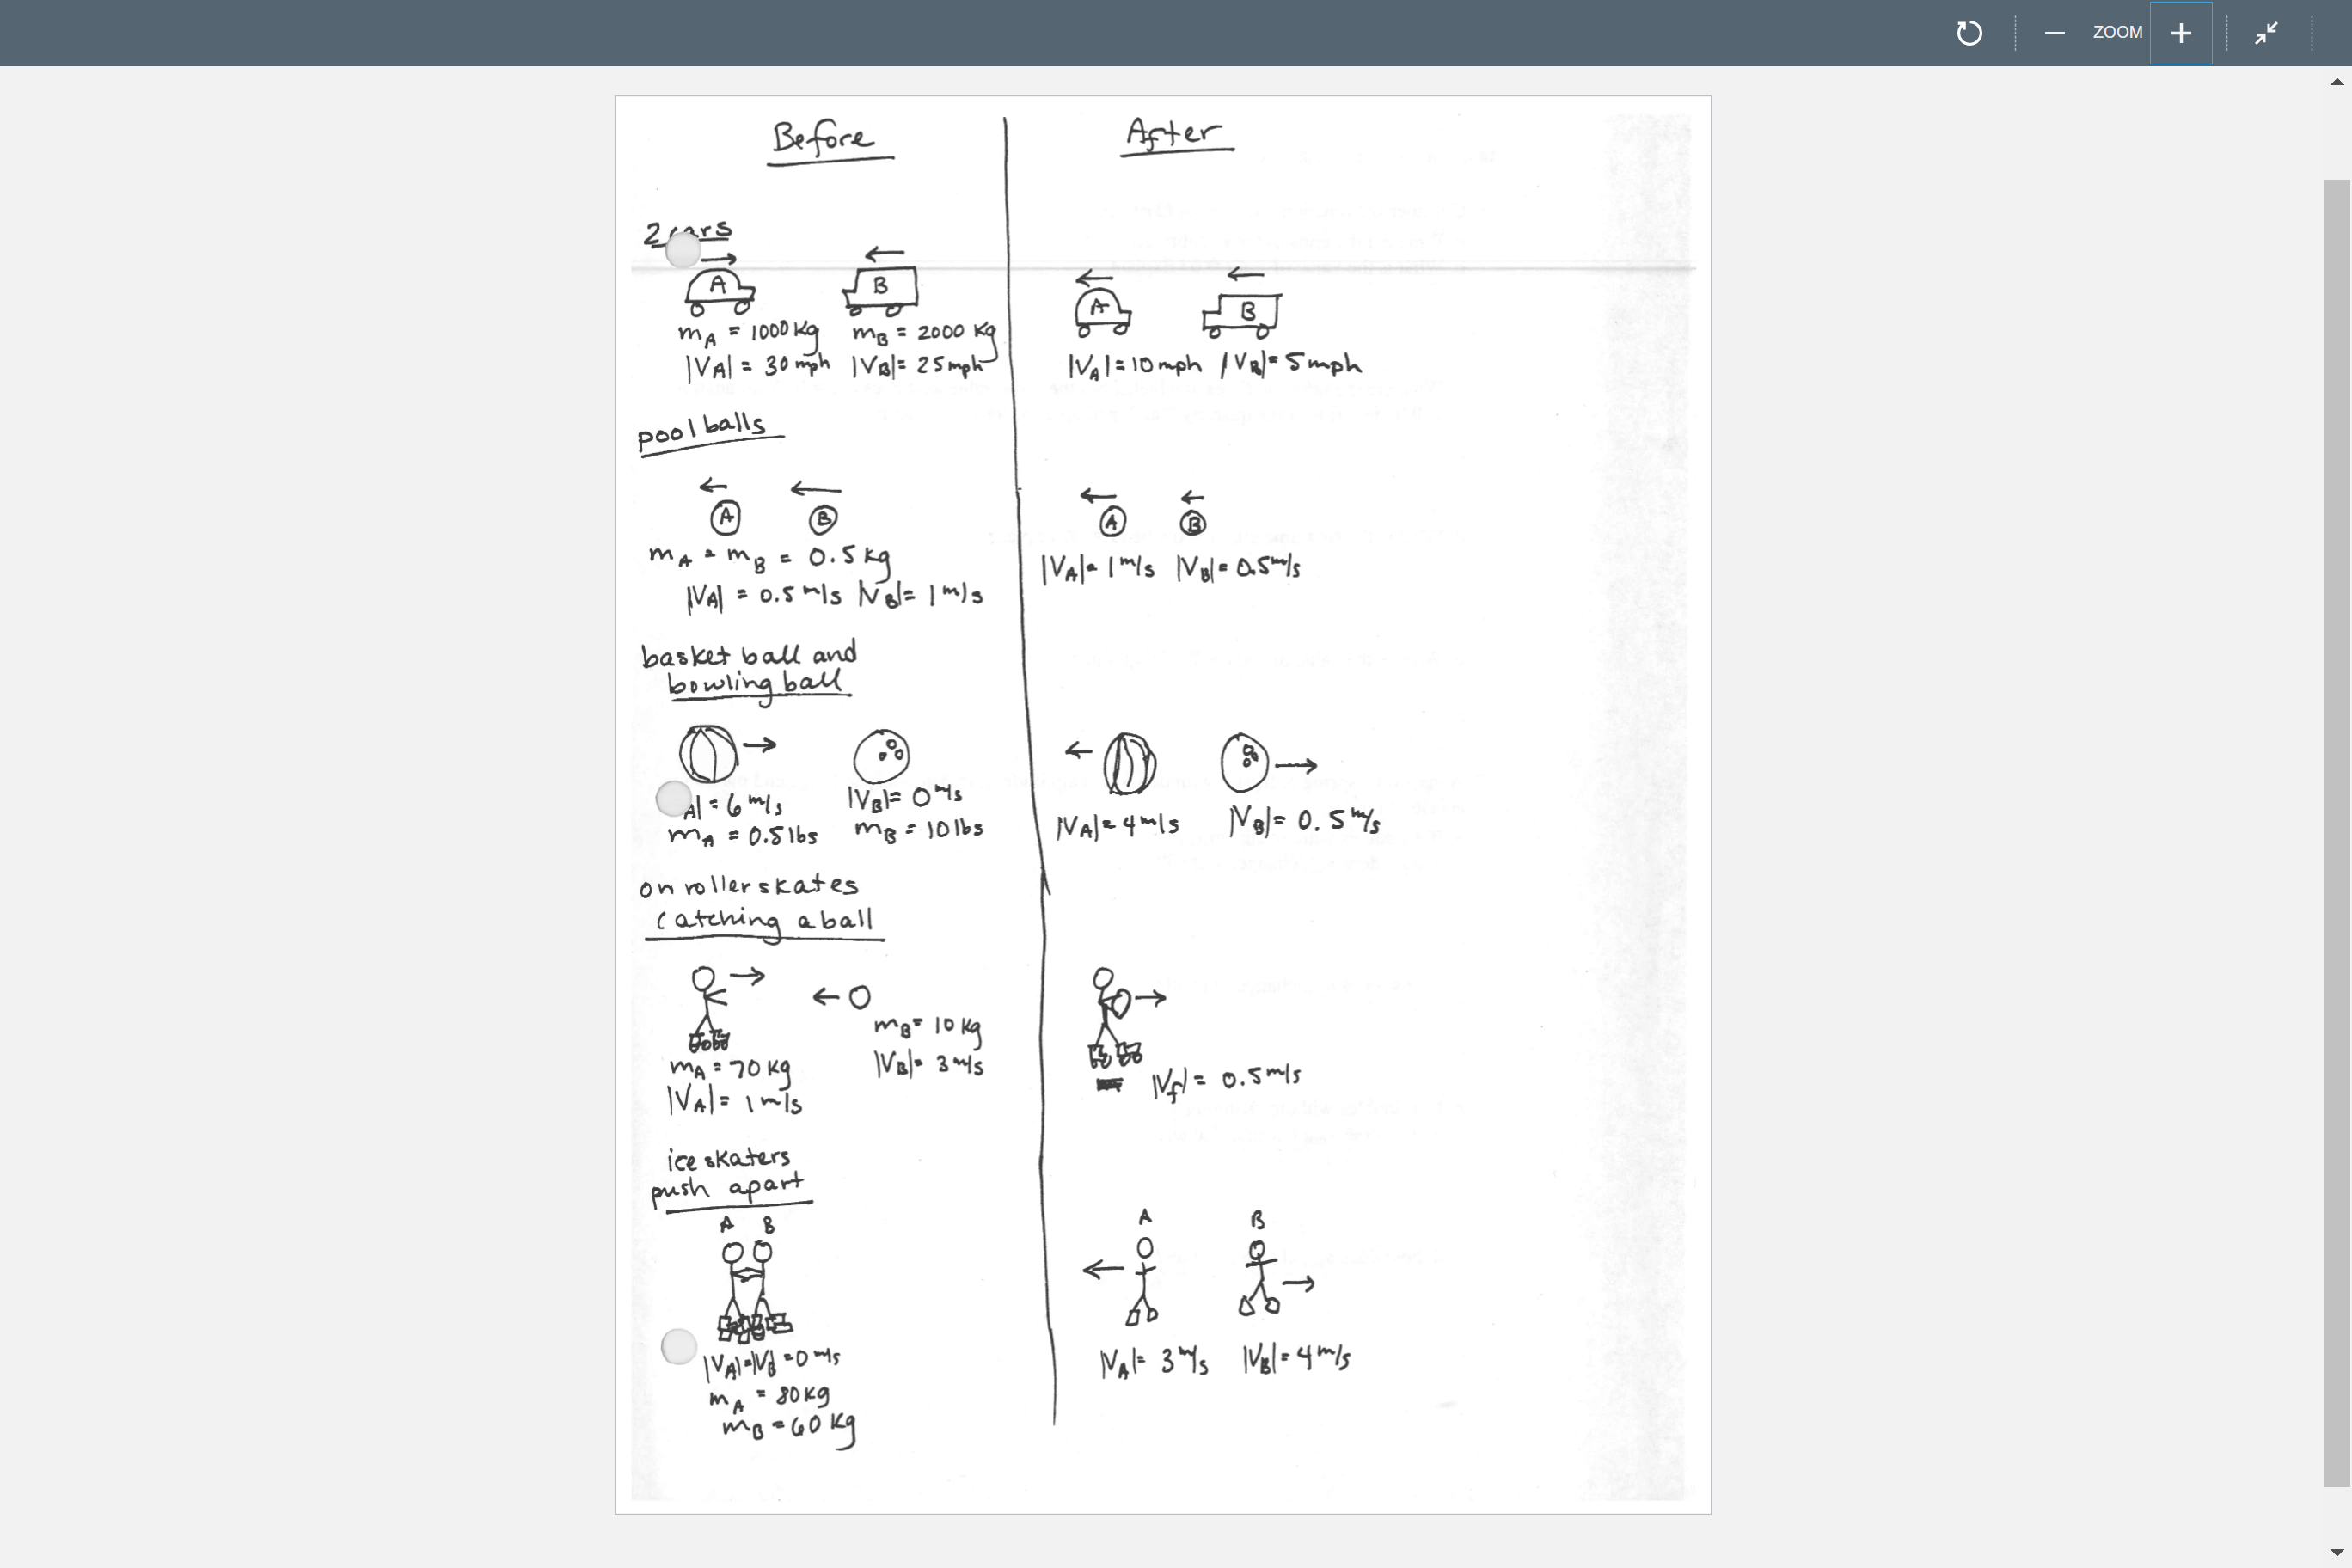 ZOOM
Before
After
2 cars
A
B
A
B
mA = 1000 kg
mB = 2000 kg
|VA| = 30 mph
|VB| = 25 mph
|VA| = 10 mph
|VB| = 5 mph
pool balls
A
B
A
B
mA = mB = 0.5 kg
|VA| = 0.5 m/s
|VB| = 1 m/s
|VA| = 1 m/s
|VB| = 0.5 m/s
basket ball and
bowling ball
A| = 6 m/s
|VB| = 0 m/s
mA = 0.5 lbs
mB = 10 lbs
|VA| = 4 m/s
|VB| = 0.5 m/s
on roller skates
catching a ball
mB = 10 kg
|VB| = 3 m/s
mA = 70 kg
|VA| = 1 m/s
|Vf| = 0.5 m/s
ice skaters
push apart
A B
A
B
|VA| = |VB| = 0 m/s
mA = 80 kg
mB = 60 kg
|VA| = 3 m/s
|VB| = 4 m/s